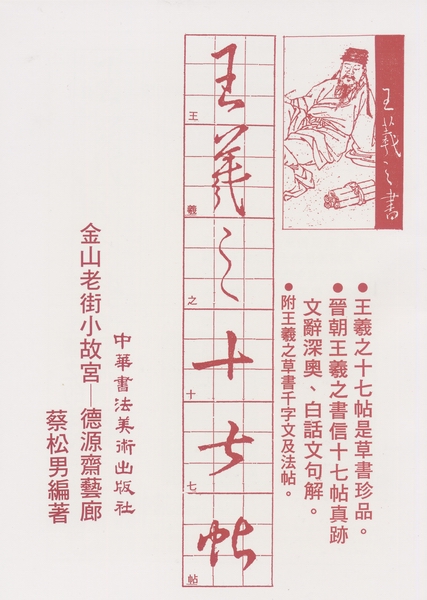 王羲之書
王羲之十七帖是草書珍品。
晉朝王羲之書信十七帖真跡
文辭深奧、白話文句解。
附王羲之草書千字文及法帖。
王羲之十七帖
王
羲
之
十
七
帖
中華書法美術出版社
金山老街小故宮─德源齋藝廊
蔡松男編著